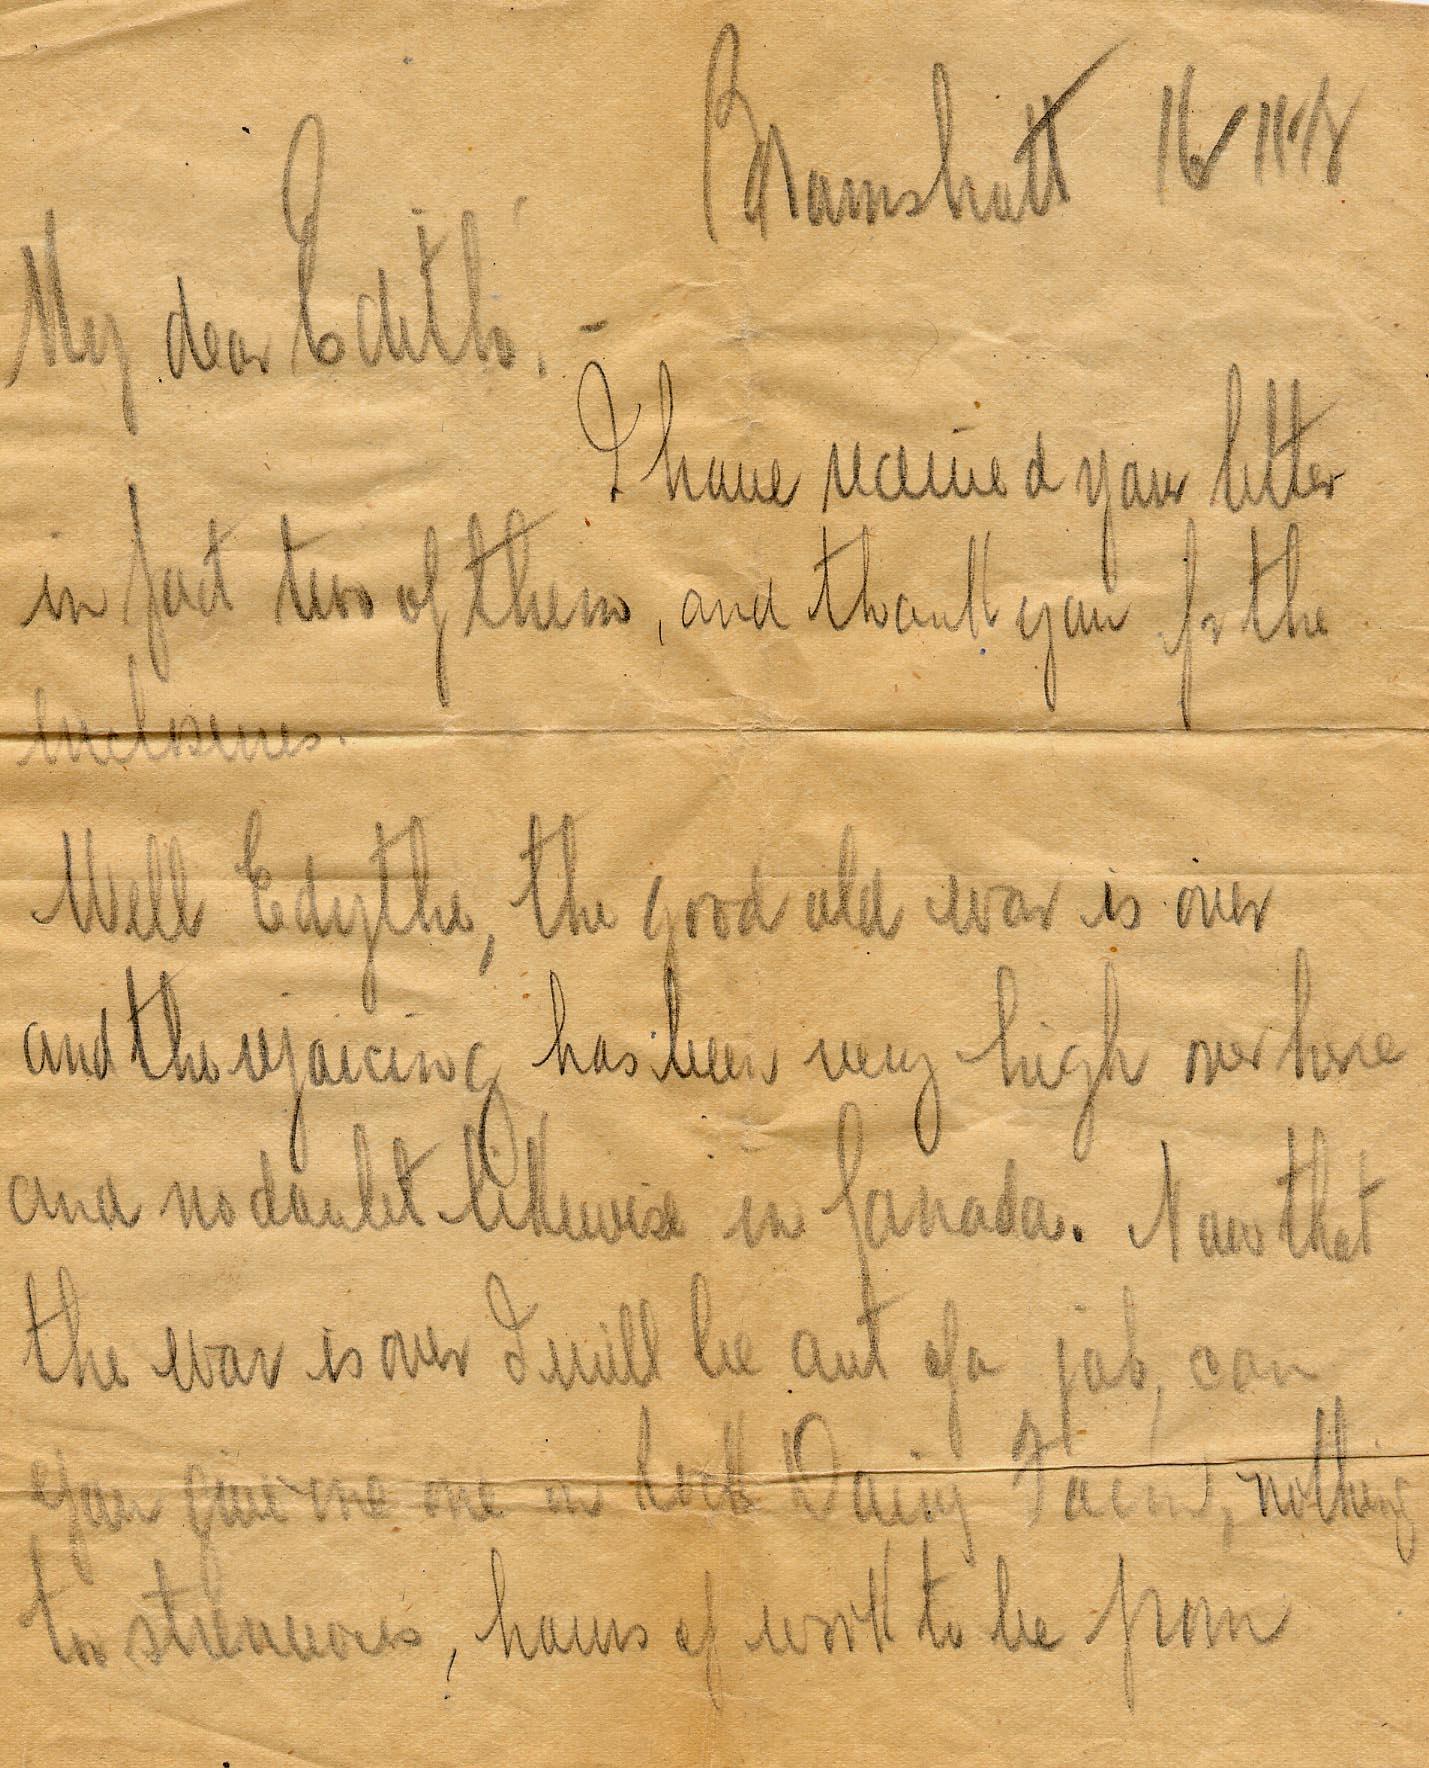 Bramshott 16/11/18
My dear Edith. -
I have received your letter
in fact two of them, and thank you for the
inclosures.
Well Edythe, the good old war is over
and the rejoicing has been very high over here
and no doubt likewise in Canada. Now that
the war is over I will be out of a job, can
you give me one on Dairy Farm, nothing
too strenuous, hours of work to be from